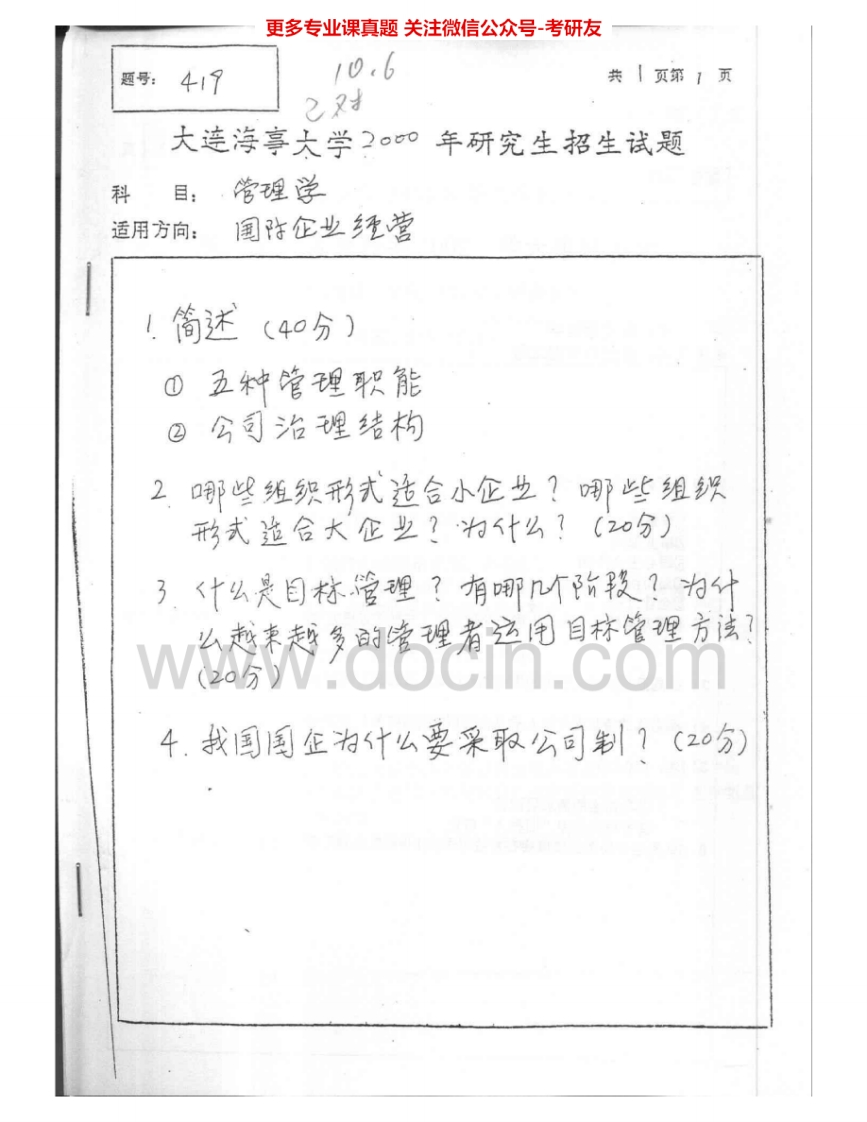 更多专业课真题 关注微信公众号-考研友
题号: 419
10.6
已对
共 1 页第 1 页
大连海事大学2000 年研究生招生试题
科 目: 管理学
适用方向: 国际企业经营
1. 简述 (40分)
① 五种管理职能
② 公司治理结构
2. 哪些组织形式适合小企业? 哪些组织
形式适合大企业? 为什么? (20分)
3 什么是目标管理? 有哪几个阶段? 为什
么越来越多的管理者运用目标管理方法?
(20分)
www.docin.com
4. 我国国企为什么要采取公司制? (20分)